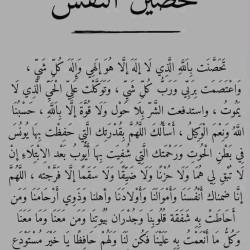 تحصين النفس
تَحَصَّنْتُ بِاللَّهِ الَّذِي لَا إِلَهَ إِلَّا هُوَ إِلَهِي وَإِلَهُ كُلِّ شَيْءٍ ،
وَاعْتَصَمْتُ بِرَبِّي وَرَبِّ كُلِّ شَيْءٍ ، وَتَوَكَّلْتُ عَلَى الْحَيِّ الَّذِي لَا
يَمُوتُ ، واستدفعت الشَّرَّ بِلَا حَوْلَ وَلَا قُوَّةَ إِلَّا بِاللَّهِ ، حَسْبُنَا
اللَّهُ وَنِعْمَ الْوَكِيلُ ، أَسْأَلُكَ اللَّهُمَّ بِقُدْرَتِكَ الَّتِي حَفِظْتَ بِهَا يُونُسَ
فِي بَطْنِ الْحُوتِ وَرَحْمَتِكَ الَّتِي شَفَيْتَ بِهَا أَيُّوبَ بَعْدَ الِابْتِلَاءِ أَنْ
لَا تُبْقِ لِي هَمًّا وَلَا حُزْنًا وَلَا ضِيقًا وَلَا سَقَمًا إِلَّا فَرَّجْتَهُ ، اللَّهُمَّ
إِنَّا ضمناك أَنْفُسَنَا وَأَمْوَالَنَا وَأَوْلَادَنَا وَأَهلنا وَذوي أَرْحَامَنَا وَمَنْ
أَحَاطَتْ بِهِ شَفَقَةُ قُلُوبِنَا وَجُدْرَانُ بُيُوتِنَا وَمَنْ مَعَنَا وَمَا مَعَنَا
وَكُلُّ مَا أَنْعَمْتَ بِهِ عَلَيْنَا فَكُنْ لَنَا وَلَهُمْ حَافِظًا يَا خَيْرَ مُسْتَوْدَعٍ